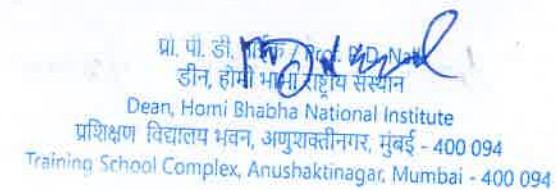 प्रो. पी. डी. / Prof. P.D.
डीन, होमी भाभा राष्ट्रीय संस्थान
Dean, Homi Bhabha National Institute
प्रशिक्षण विद्यालय भवन, अणुशक्तीनगर, मुंबई - 400 094
Training School Complex, Anushaktinagar, Mumbai - 400 094